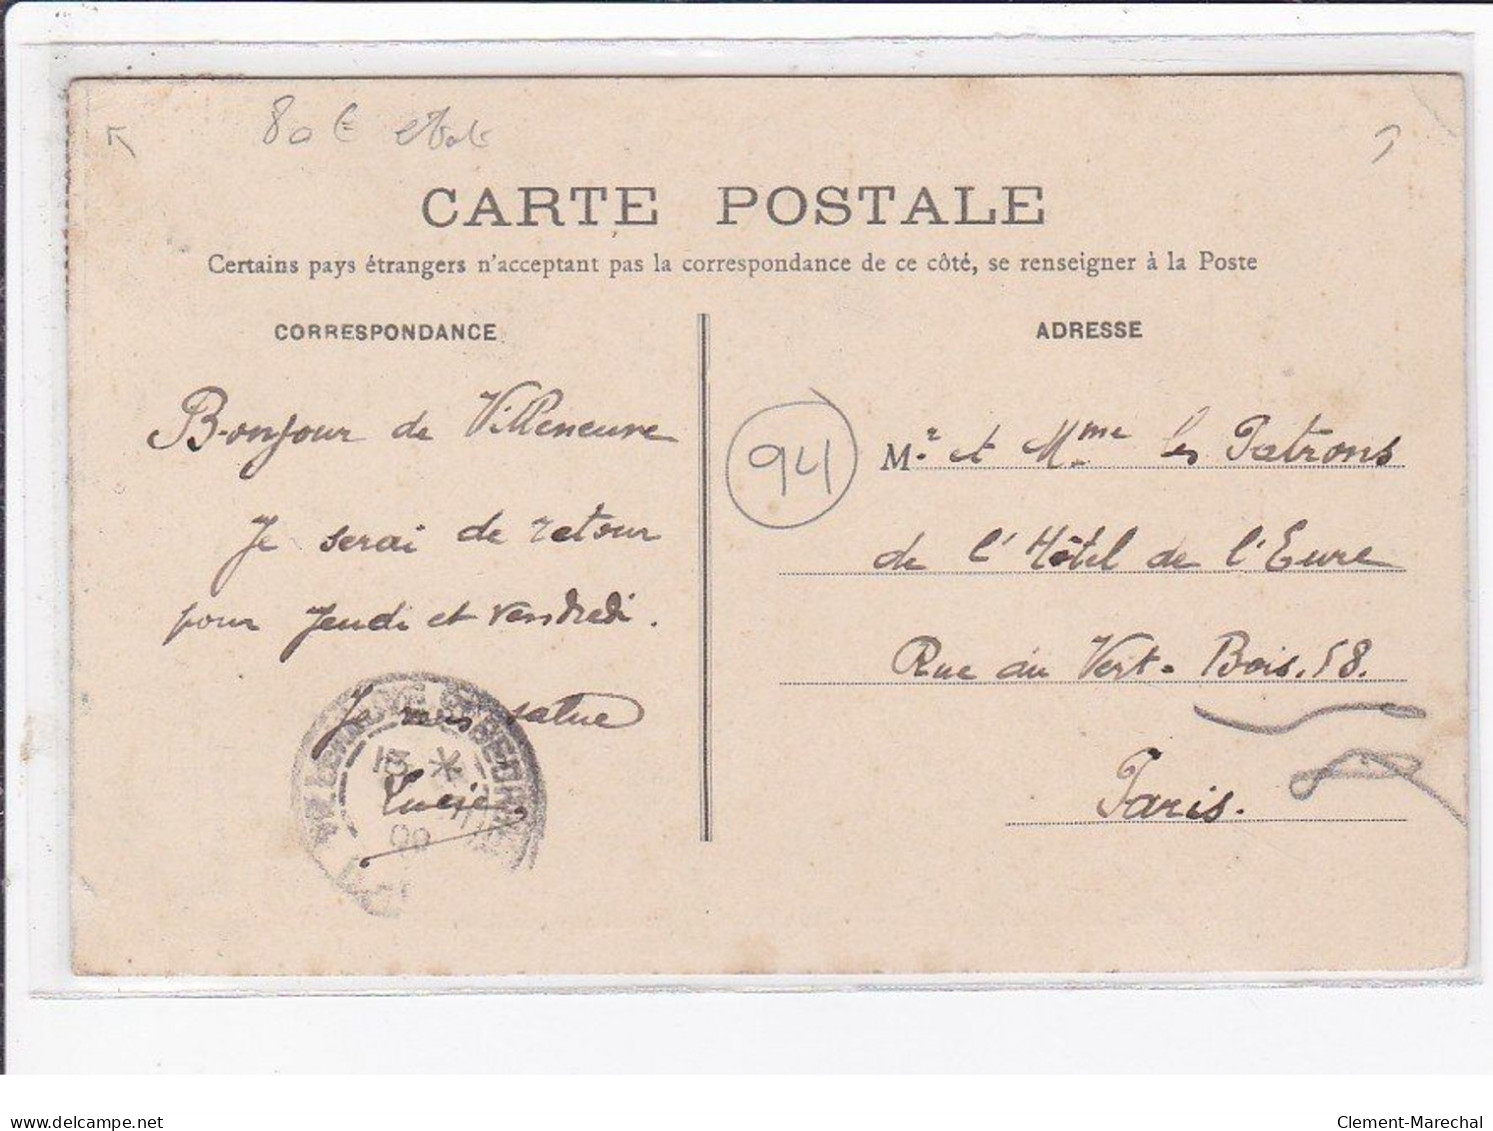 80 €
CARTE POSTALE
Certains pays étrangers n'acceptant pas la correspondance de ce côté, se renseigner à la Poste
CORRESPONDANCE
Bonjour de Villeneuve
Je serai de retour
pour Jeudi et Vendredi.
Je vous salue
Lucie
VILLENEUVE ST GEORGES
15 *
09
ADRESSE
94
Mr et Mme les Patrons
de l'Hôtel de l'Eure
Rue du Vert-Bois. 58.
Paris.
delcampe.net
Clement-Marechal